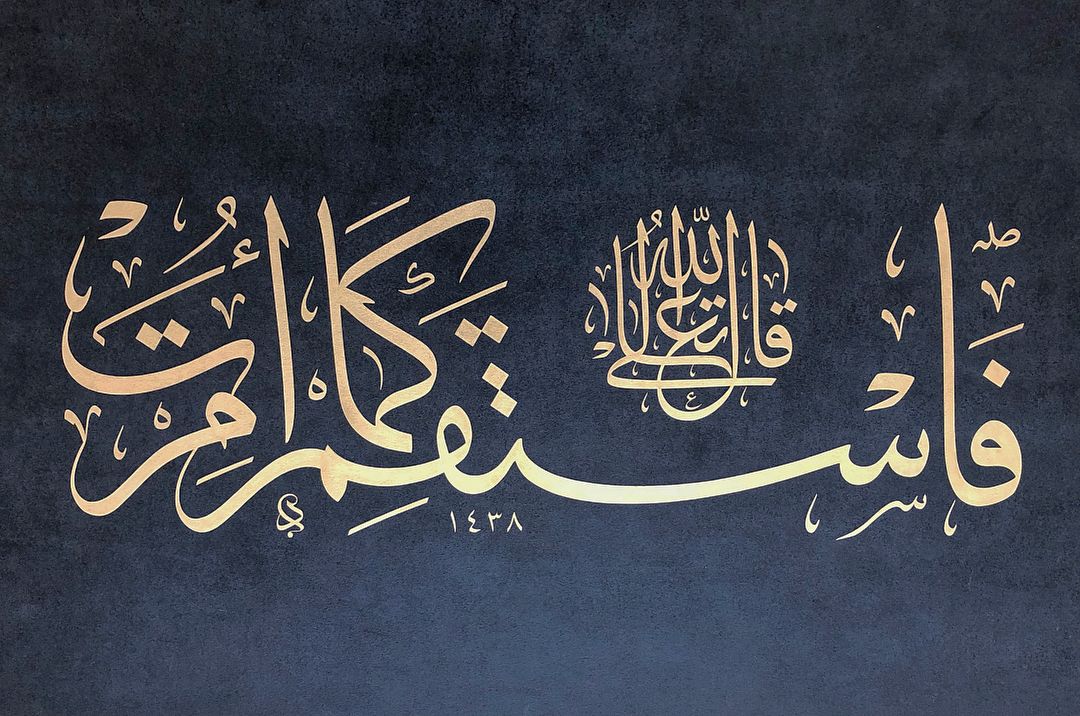 قال الله تعالى
فَاسْتَقِمْ كَمَا أُمِرْتَ
١٤٣٨